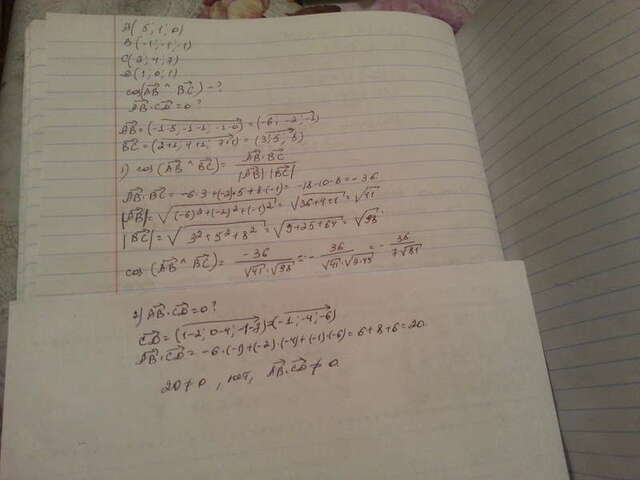 A(5; 1; 0)
B(-1; -1; -1)
C(2; 4; 7)
D(1; 0; 1)
cos(AB ^ BC) - ?
AB · CD = 0?
AB = (-1-5; -1-1; -1-0) = (-6; -2; -1)
BC = (2+1; 4+1; 7+1) = (3; 5; 8)
1) cos(AB ^ BC) = AB·BC / |AB| |BC|
AB · BC = -6·3 + (-2)·5 + 8·(-1) = -18-10-8 = -36
|AB| = √(-6)²+(-2)²+(-1)² = √36+4+1 = √41
|BC| = √3²+5²+8² = √9+25+64 = √98
cos(AB ^ BC) = -36 / √41·√98 = - 36 / √41·√2·49 = - 36 / 7√82
2) AB · CD = 0?
CD = (1-2; 0-4; 1-7) = (-1; -4; -6)
AB · CD = -6·(-1)+(-2)·(-4)+(-1)·(-6) = 6+8+6 = 20
20 ≠ 0, нет, AB · CD ≠ 0